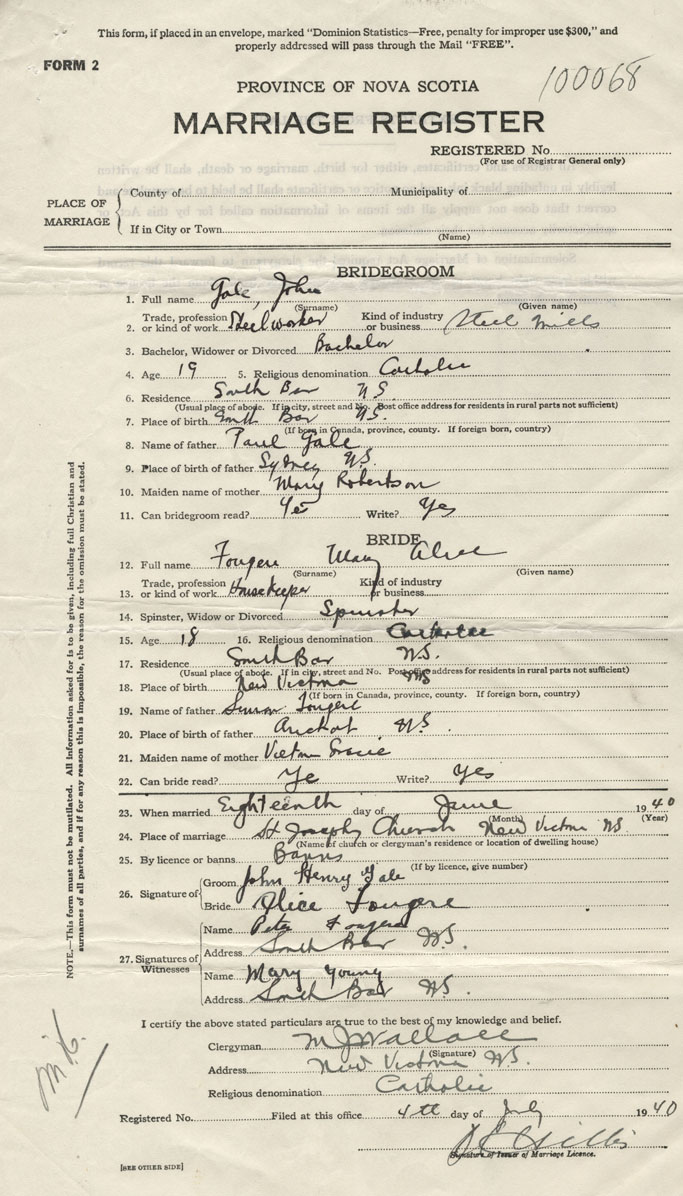 This form, if placed in an envelope, marked “Dominion Statistics—Free, penalty for improper use $300,” and
properly addressed will pass through the Mail “FREE”.
FORM 2
100068
PROVINCE OF NOVA SCOTIA
MARRIAGE REGISTER
REGISTERED No.
(For use of Registrar General only)
PLACE OF MARRIAGE
County of
Municipality of
If in City or Town
(Name)
BRIDEGROOM
1. Full name Gale, John
(Surname) (Given name)
2. Trade, profession or kind of work Steelworker Kind of industry or business Steel Mills
3. Bachelor, Widower or Divorced Bachelor
4. Age 19 5. Religious denomination Catholic
6. Residence South Bar NS
(Usual place of abode. If in city, street and No. Post office address for residents in rural parts not sufficient)
7. Place of birth South Bar NS.
(If born in Canada, province, county. If foreign born, country)
8. Name of father Paul Gale
9. Place of birth of father Sydney NS.
10. Maiden name of mother Mary Robertson
11. Can bridegroom read? Yes Write? Yes
BRIDE
12. Full name Fougere Mary Alice
(Surname) (Given name)
13. Trade, profession or kind of work Housekeeper Kind of industry or business
14. Spinster, Widow or Divorced Spinster
15. Age 18 16. Religious denomination Catholic
17. Residence South Bar NS.
(Usual place of abode. If in city, street and No. Post office address for residents in rural parts not sufficient)
18. Place of birth New Victoria NS
(If born in Canada, province, county. If foreign born, country)
19. Name of father Simon Fougere
20. Place of birth of father Arichat NS.
21. Maiden name of mother
22. Can bride read? Ye Write? Yes
23. When married Eighteenth day of June 1940
(Month) (Year)
24. Place of marriage St Josephs Church New Victoria NS.
(Name of church or clergyman's residence or location of dwelling house)
25. By licence or banns Banns
(If by licence, give number)
26. Signature of
Groom John Henry Gale
Bride Alice Fougere
27. Signatures of Witnesses
Name Peter Fougere
Address South Bar NS.
Name Mary Young
Address South Bar NS.
I certify the above stated particulars are true to the best of my knowledge and belief.
Clergyman M J Wallace
(Signature)
Address New Victoria NS.
Religious denomination Catholic
Registered No. Filed at this office 4th day of July 1940
Signature of Issuer of Marriage Licence.
[SEE OTHER SIDE]
NOTE.—This form must not be mutilated. All information asked for is to be given, including full Christian and
surnames of all parties, and if for any reason this is impossible, the reason for the omission must be stated.